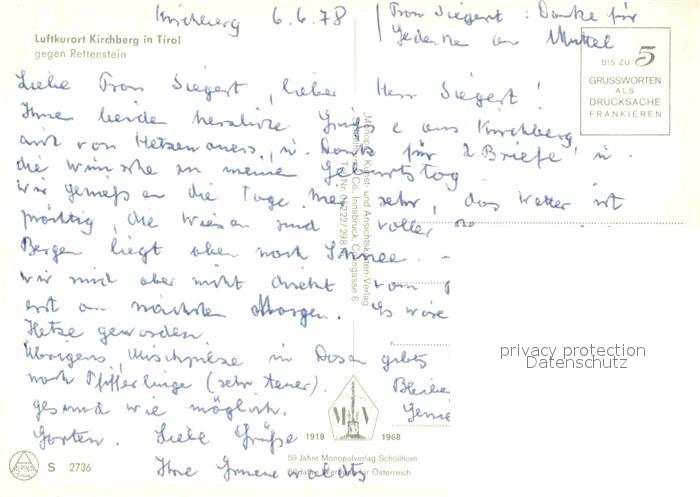 Kirchberg 6.6.78
Frau Siegert: Danke für
Luftkurort Kirchberg in Tirol
gegen Rettenstein
BIS ZU 5
GRUSSWORTEN
ALS
DRUCKSACHE
FRANKIEREN
Liebe Frau Siegert, lieber Herr Siegert!
Ihnen beiden herzliche Grüße aus Kirchberg
auch von Hetzenauers, u. Dank für 2 Briefe u.
die Wünsche zu meinem Geburtstag.
Wir genießen die Tage hier sehr, das Wetter ist
prächtig, die Wiesen sind voller
Bergen liegt aber noch Schnee. -
wir sind aber nicht direkt vom
erst am nächsten Morgen. Es wäre
Hetze geworden.
Übrigens, Mischpilze in Dosen gibts
noch Pfifferlinge (sehr teuer). Bleiben
gesund wie möglich.
Garten. Liebe Grüße
Ihre
Monopol Kunst- und Ansichtskarten-Verlag
Schöllhorn & Co., Innsbruck, 6
MV
1918 1968
50 Jahre Monopolverlag Schöllhorn
50 Jahre Werbung für Österreich
ALPINA
S 2736
privacy protection
Datenschutz